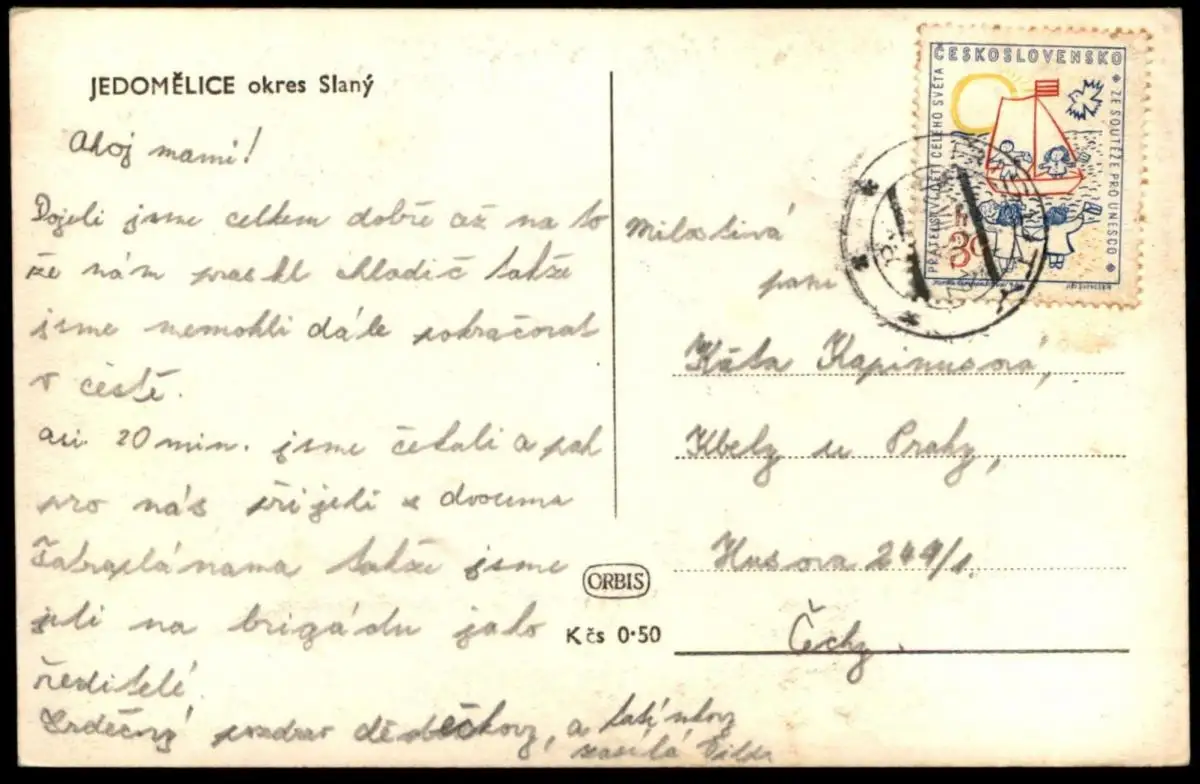 JEDOMĚLICE okres Slaný
Ahoj mami!
Dojeli jsme celkem dobře až na to
že nám praskl chladič takže
jsme nemohli dále pokračovat
v čestě.
asi 20 min. jsme čekali a pak
pro nás přijeli s dvouma
Tatraplánama takže jsme
jeli na brigádu jako
ředitelé.
Srdečný pozdrav dědečkovy, a tatínkovy
zasílá
ORBIS
Kčs 0·50
ČESKOSLOVENSKO
PŘÁTELSTVÍ DĚTÍ CELÉHO SVĚTA
ZE SOUTĚŽE PRO UNESCO
30 h
Milostivá
paní
Káťa Kapinusová,
Kbely u Prahy,
Husova 249/1.
Čechy.